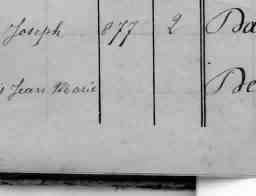 Joseph 877 2 Da
s Jean Marie De